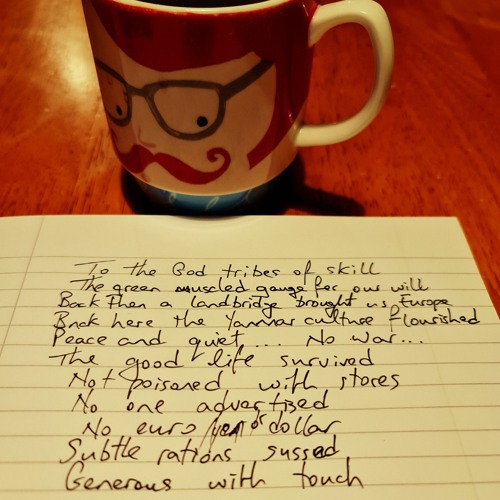 To the God tribes of skill
The green muscled gauge for our will
Back then a landbridge brought us Europe
Back here the Yamnar culture flourished
Peace and quiet... No war...
The good life survived
Not poisoned with stores
No one advertised
No euro /yen or dollar
Subtle rations sussed
Generous with touch